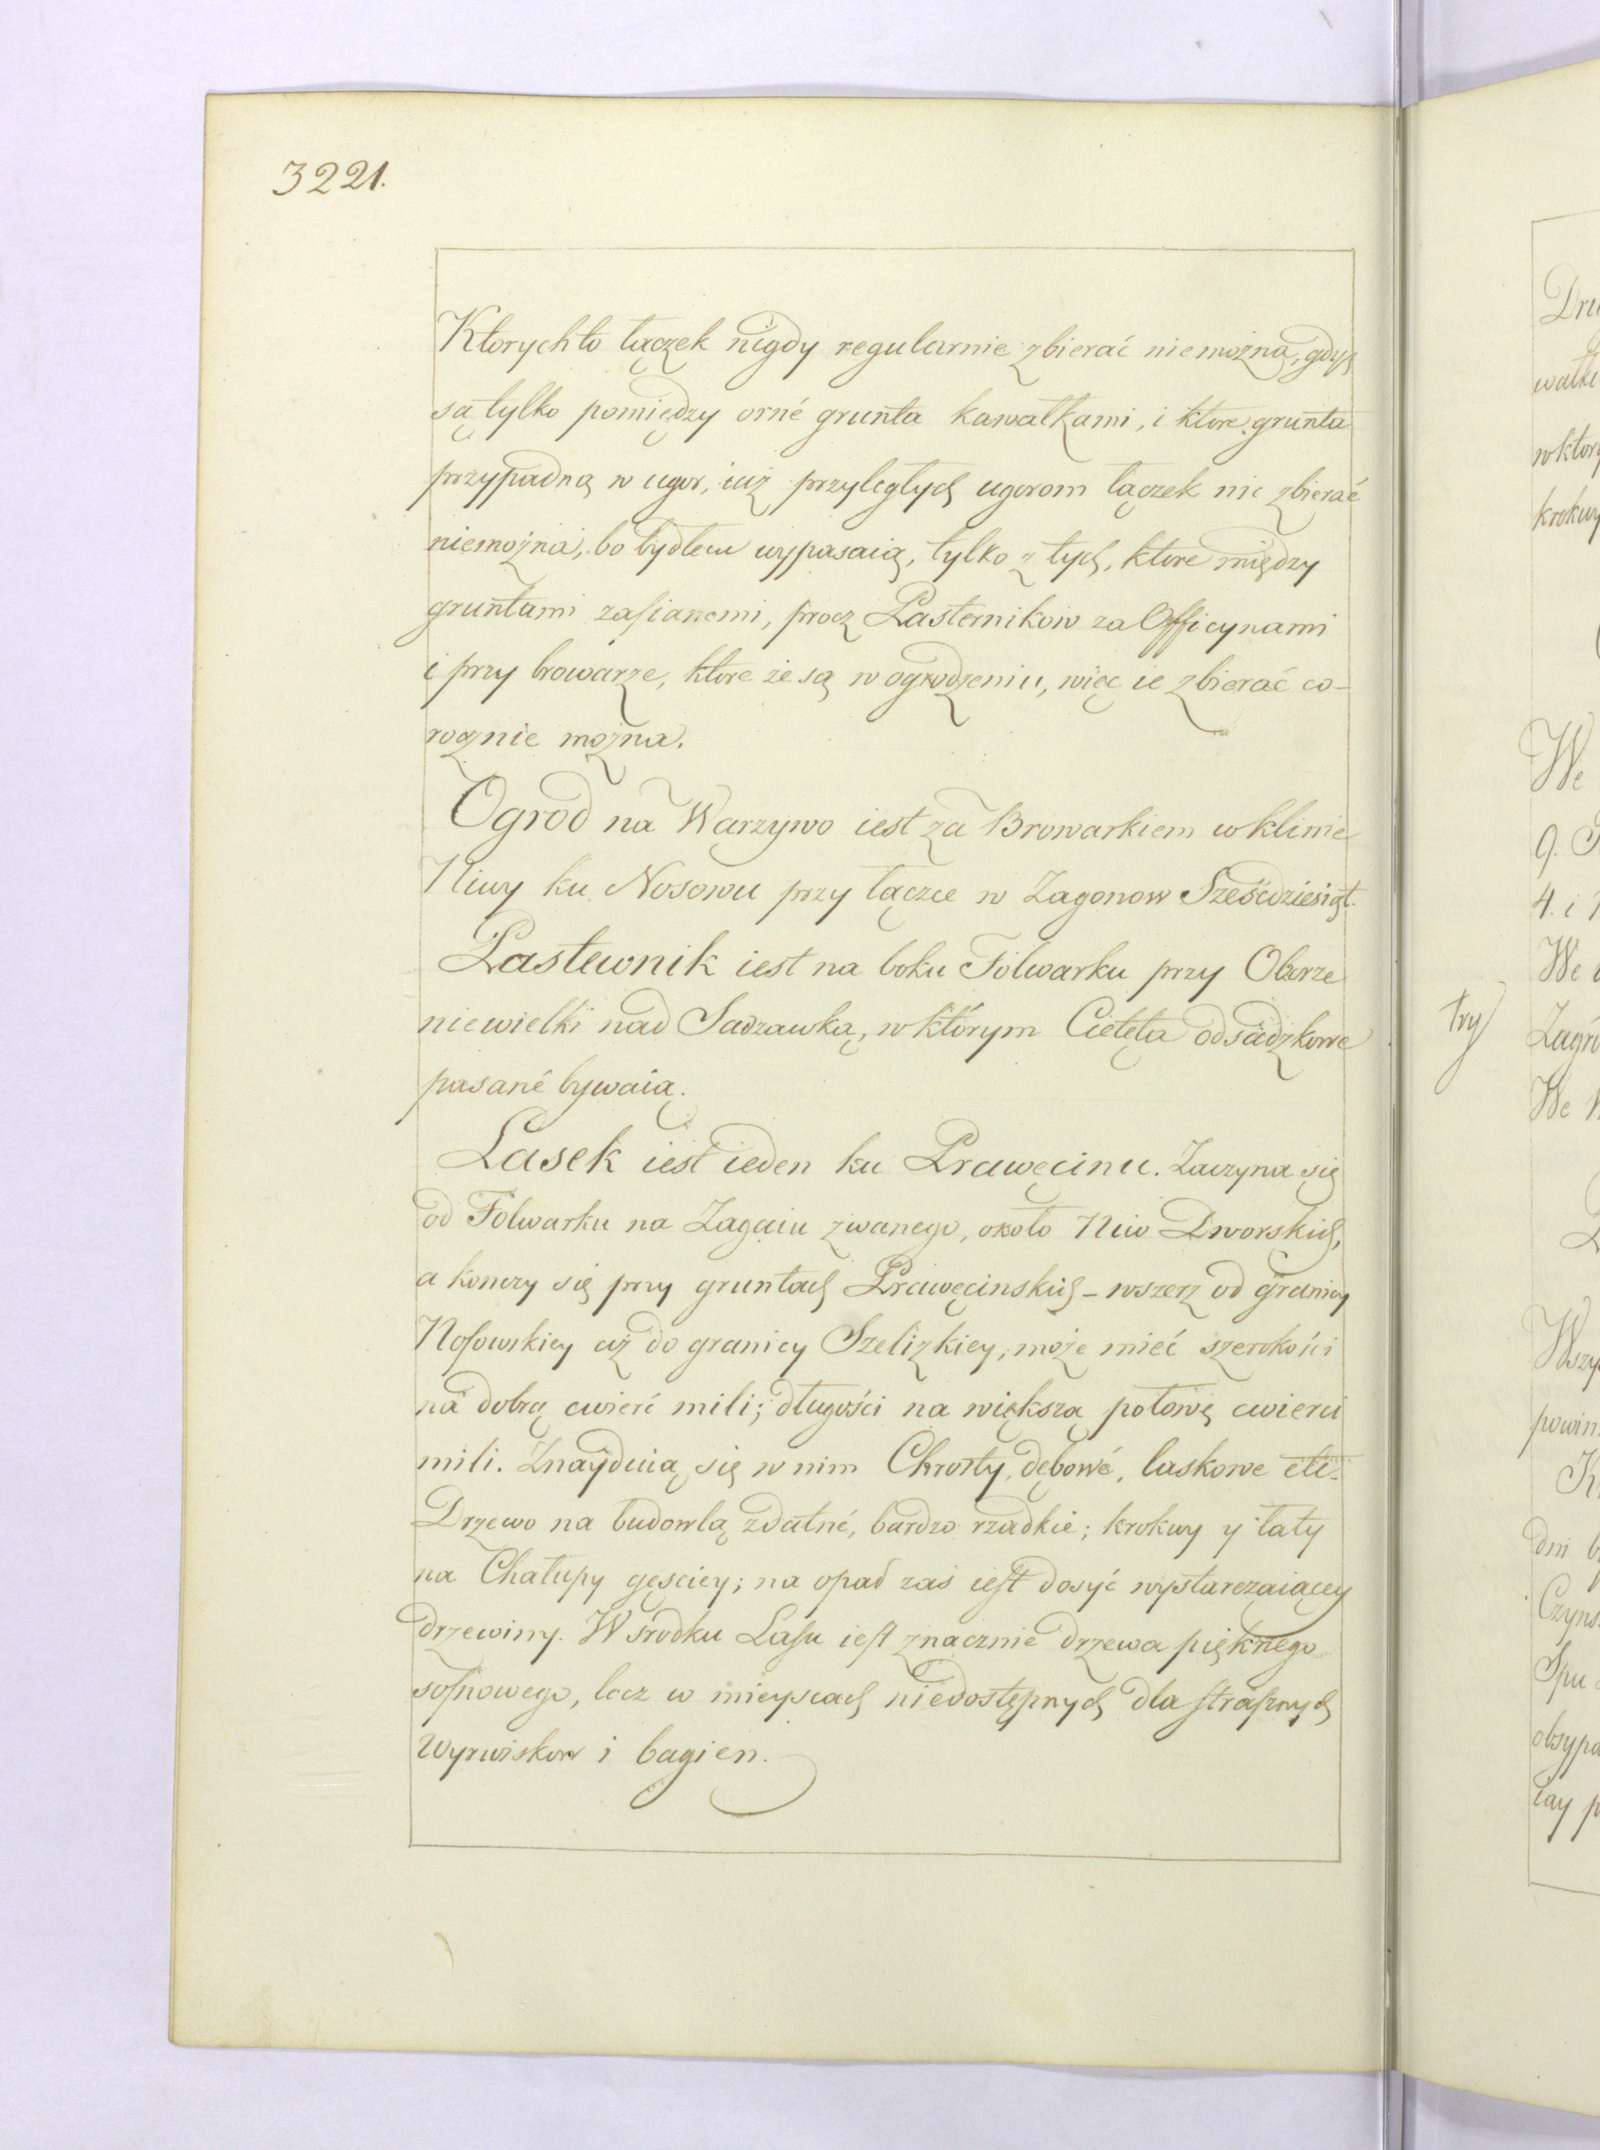 3221.
Ktorychto łączek nigdy regularnie zbierać niemożna, gdyż
są tylko pomiędzy orné grunta kawałkami, i ktore grunta
przypadną w ugor, iuż przyległych ugorom łączek nie zbierać
niemożna, bo bydłem wypasaią, tylko z tych, ktore między
gruntami zasianemi, procz Pasternikow za Officynami
i przy browarze, ktore że są w ogrodzeniu, więc ie zbierać co-
rocznie można.
Ogrod na Warzywo iest za Browarkiem w klinie
Niwy ku Nosowu przy łączce w Zagonow Sześćdziesiąt.
Pastewnik iest na boku Folwarku przy Oborze
niewielki nad Sadzawką, w którym Cielęta odsadzkowe
pasané bywaią.
Lasek iest ieden ku Prawęcinu. Zaczyna się
od Folwarku na Zagaiu zwanego, około Niw Dworskich,
a konczy się przy gruntach Prawęcinskich - wszerz od granicy
Nosowskiey aż do granicy Szelizkiey, może mieć szerokości
na dobrą cwierć mili; długości na większą połowę cwierci
mili. Znayduią się w nim Chrosty, dębowé, laskowe etc.
Drzewo na budowlą zdatné, bardzo rzadkie; krokwy y łaty
na Chałupy gęsciey; na opał zaś iest dosyć wystarczaiącey
drzewiny. W środku Lasu iest znacznie drzewa pięknego
sosnowego, lecz w mieyscach niedostępnych dla strasznych
Wyrwiskow i bagien.
try
Dru
wktory
krokwy
We
9.
4. i
We
We
dni
Czyns
obsypa